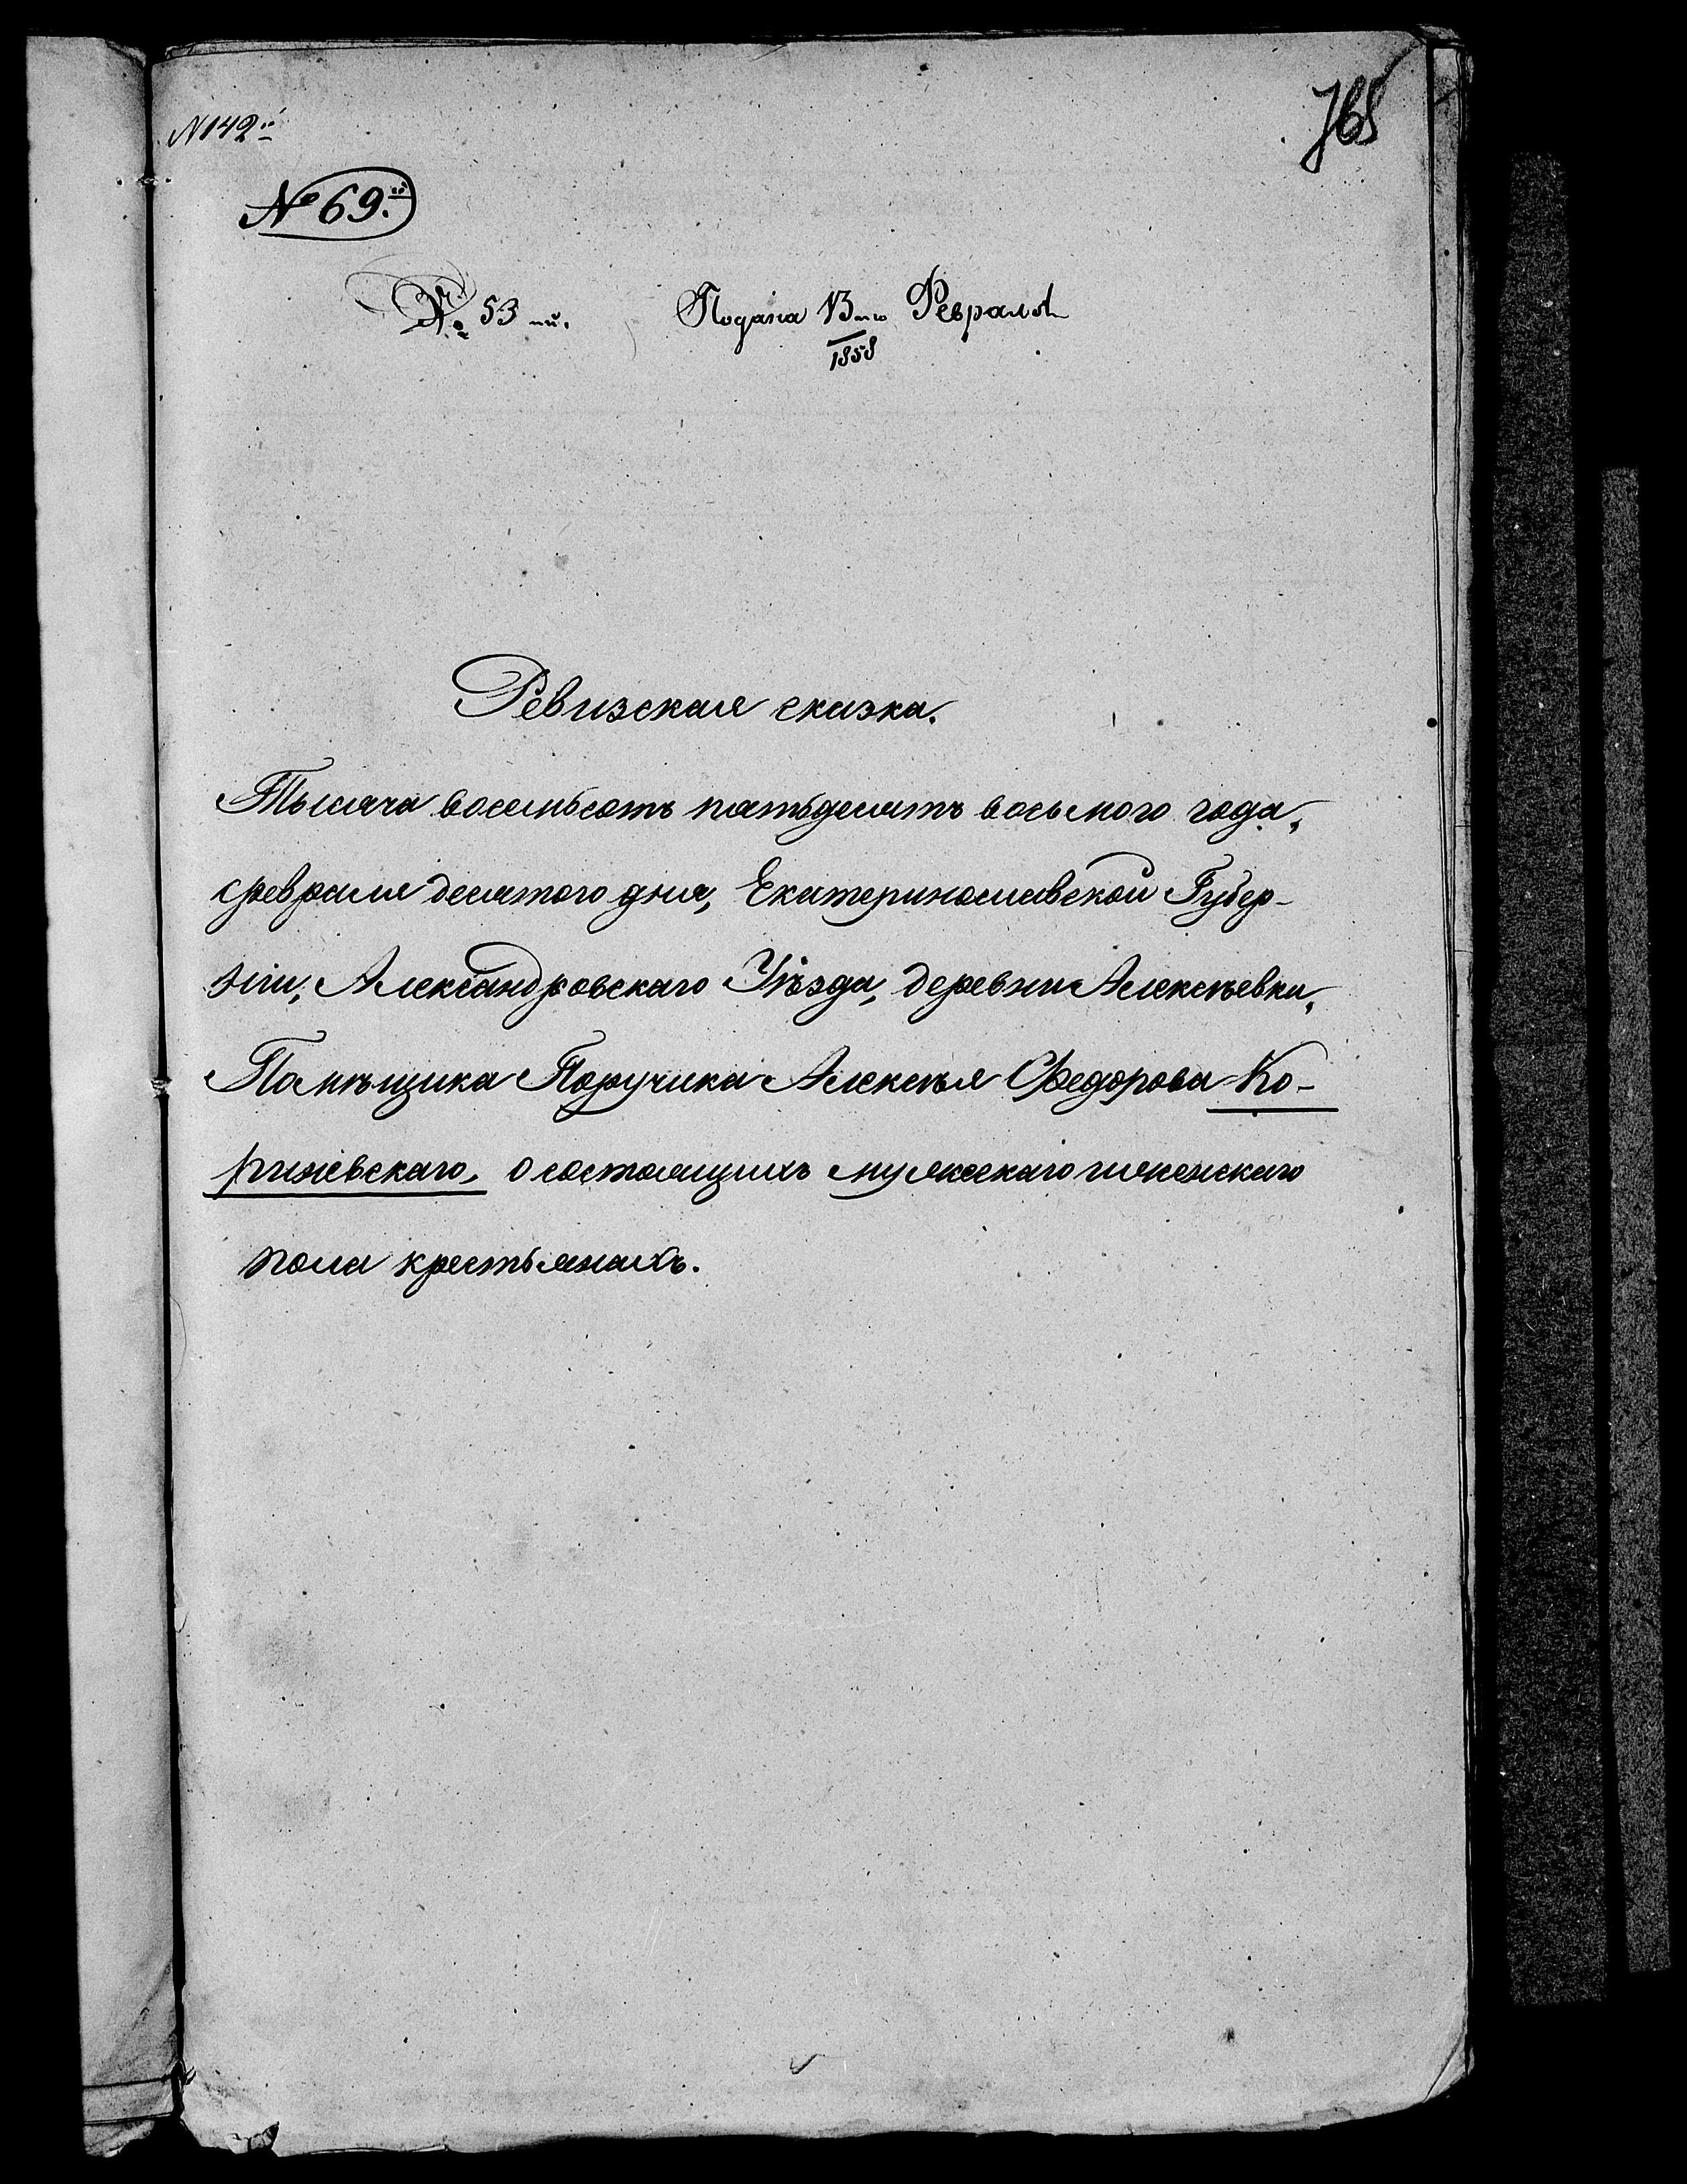 N 142й
768
№ 69.й
№ 53 ий. Подана 13го Февраля
1858
Ревизская сказка.
Тысяча восемьсотъ пятьдесятъ восьмого года,
февраля десятого дня, Екатеринославской Губер-
ніи, Александровскаго Уѣзда, деревни Алексѣевки,
Помѣщика Поручика Алексѣя Федорова Ко-
рижевскаго, о состоящихъ мужескаго и женскаго
пола крестьянахъ.